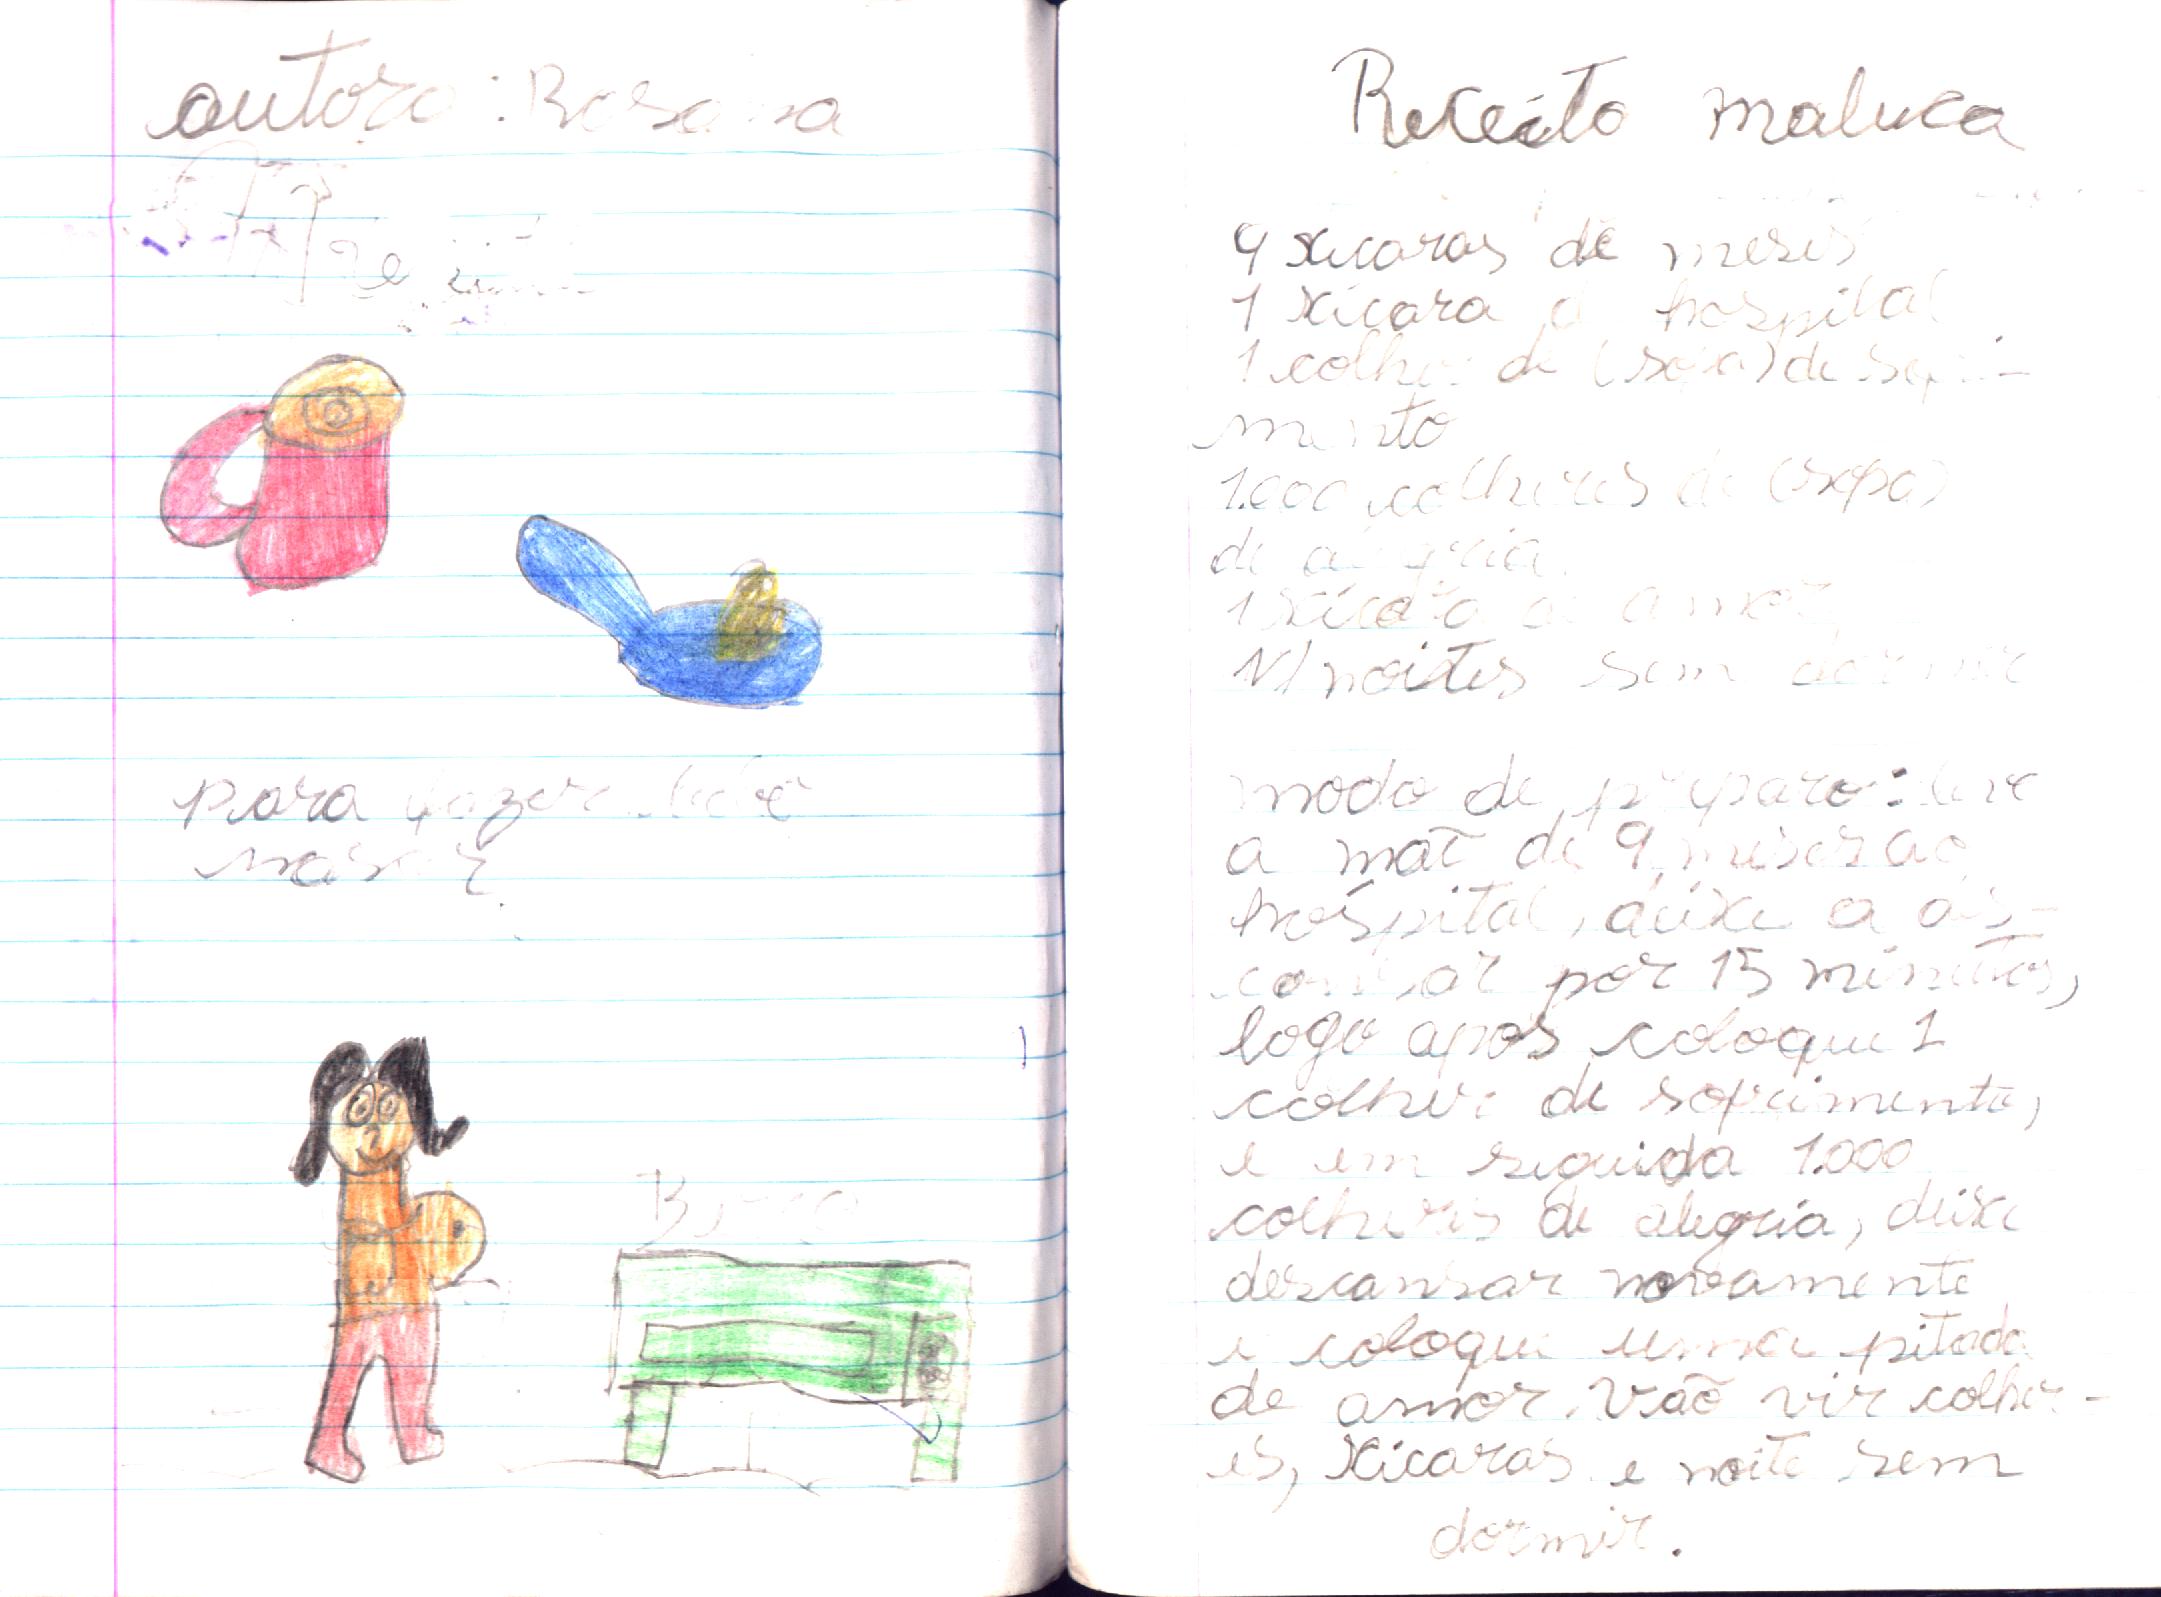 autora: Rosana
para fazer bebê
nascer
Receita maluca
9 xícaras de meses
1 xícara d hospital
1 colher de (sopa) de sofri-
mento
1.000 colheres de (sopa)
de alegria
1 xícara de amor
noites sem dormir
modo de preparo: leve
a mãe de 9 meses ao
hospital, deixe a des-
cansar por 15 minutos,
logo após coloque 1
colher de sofrimento,
e em seguida 1.000
colheres de alegria, deixe
descansar novamente
e coloque uma pitada
de amor. Vão vir colher-
es, xícaras e noite sem
dormir.